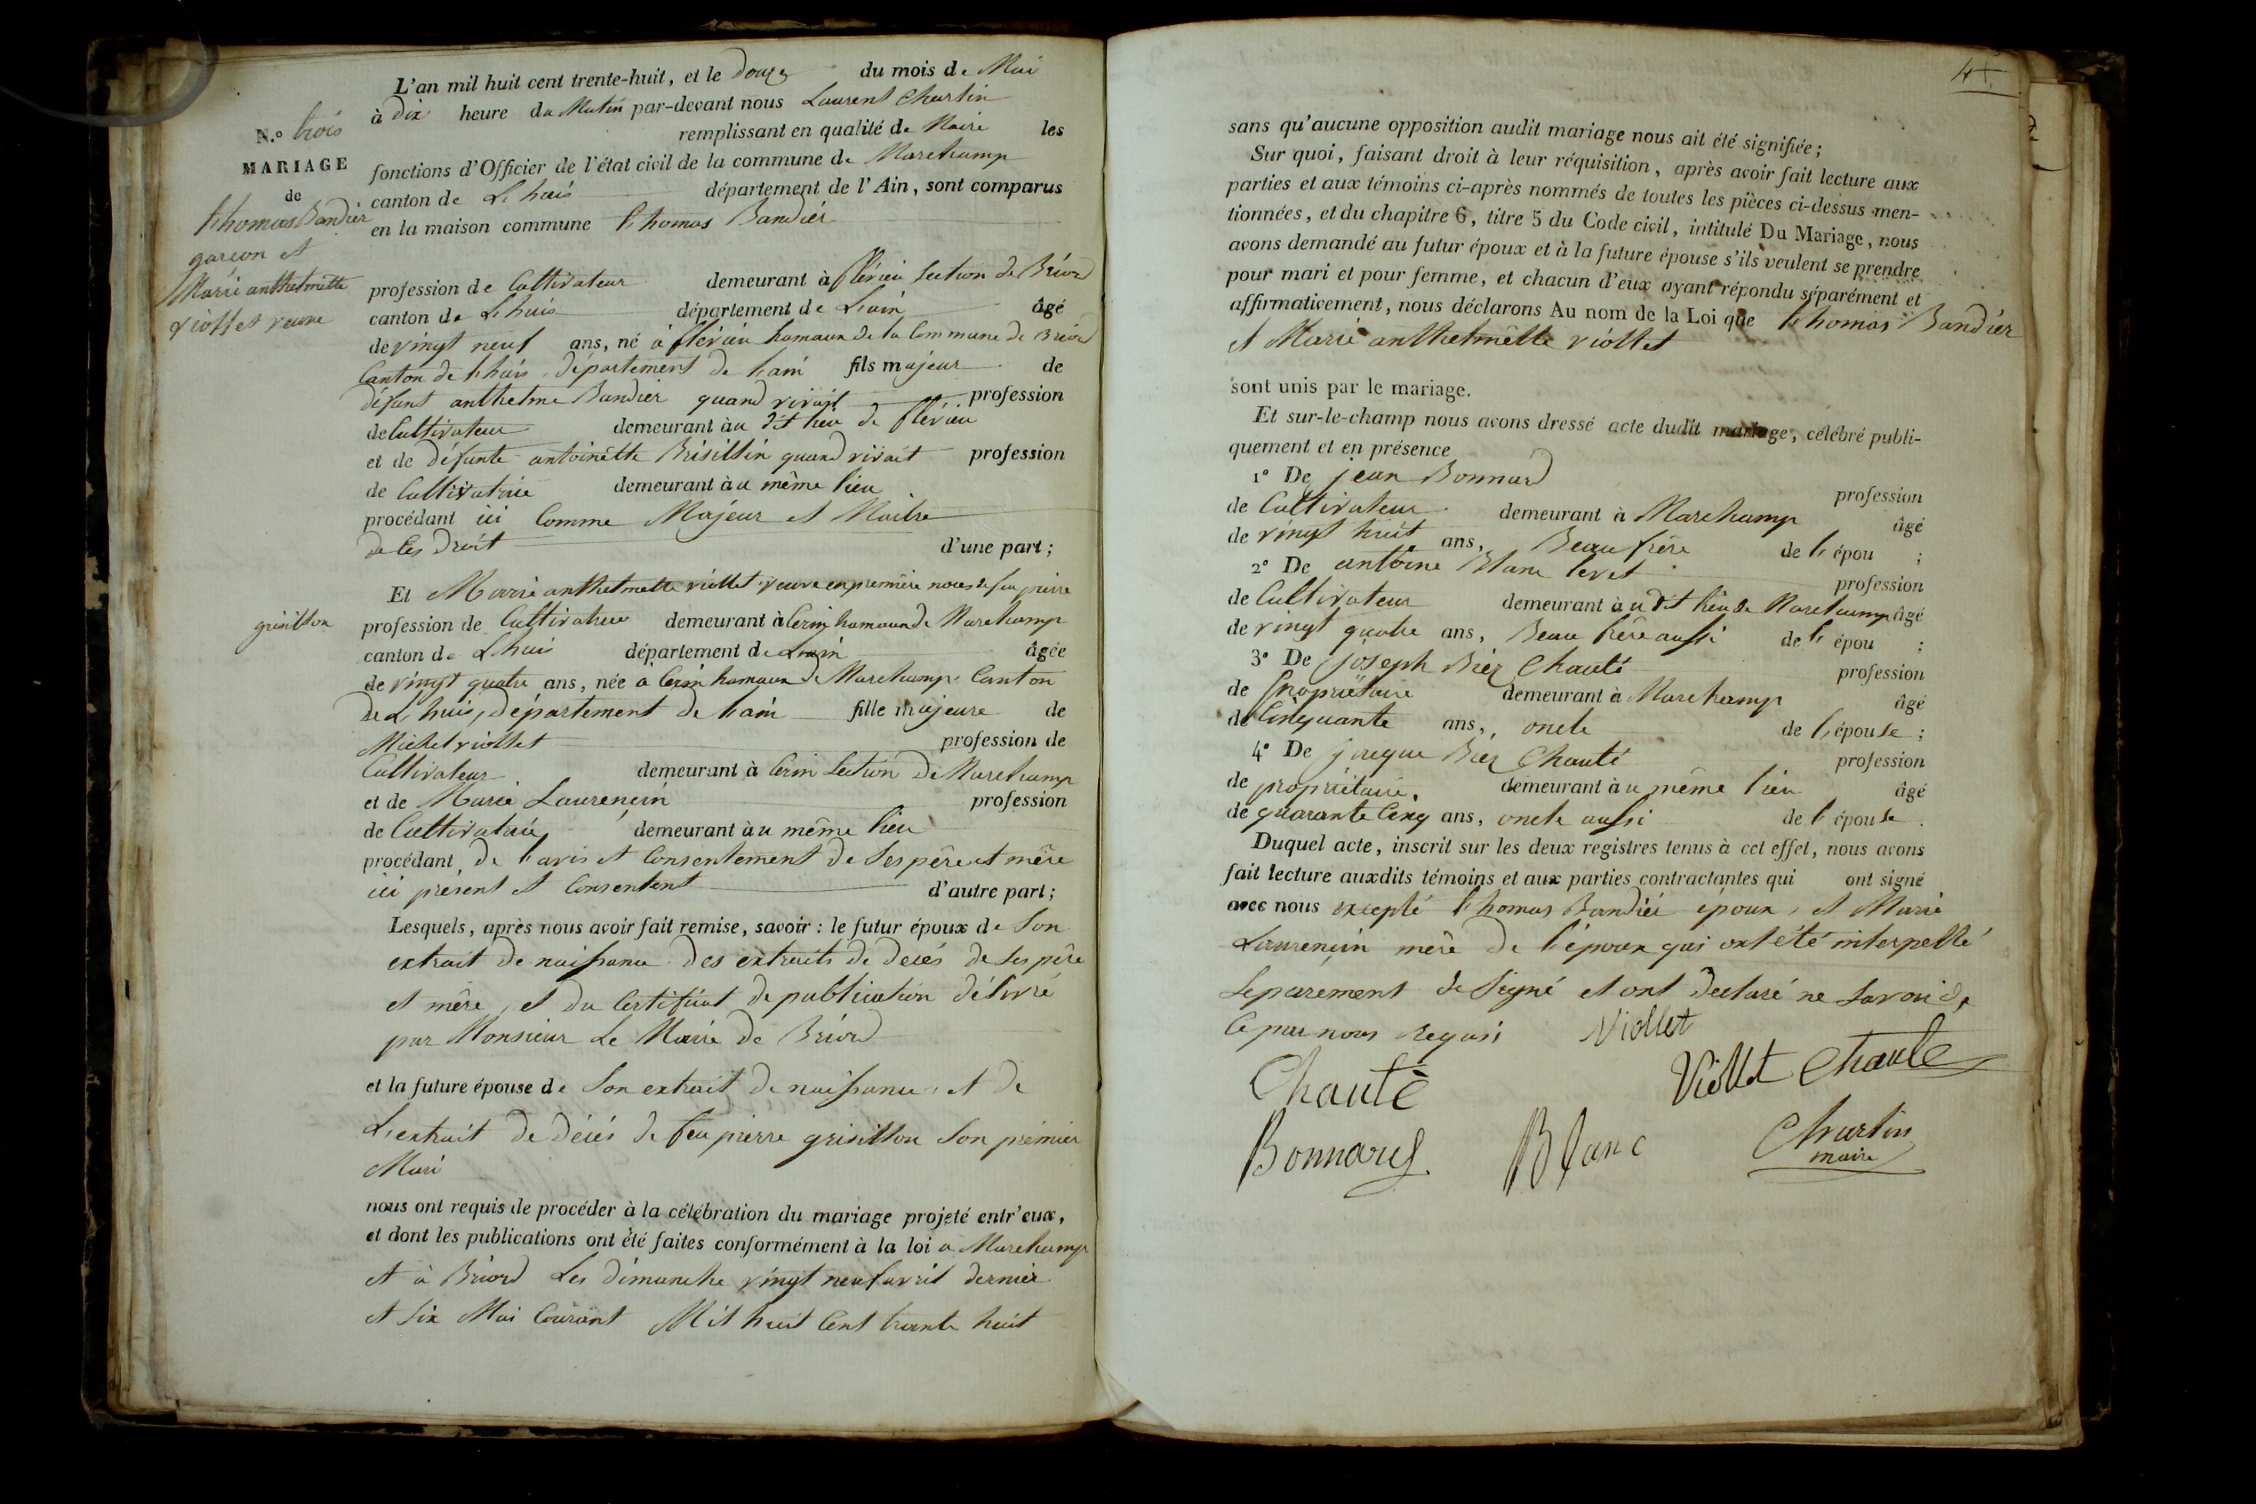 N.º trois
MARIAGE
de
thomas Bandier
garcon et
Marie anthelmette
viollet veuve
L'an mil huit cent trente-huit, et le douze du mois de Mai
à dix heure du Matin par-devant nous Laurent Chartin
remplissant en qualité de Maire les
fonctions d'Officier de l'état civil de la commune de Marchamp
canton de L huis département de l'Ain, sont comparus
en la maison commune thomas Bandier
profession de Cultivateur demeurant à flérieu Section de Briord
canton de L huis département de Lain âgé
de vingt neuf ans, né à flérieu hamaux de la Commune de Briord
Canton de Lhuis département de Lain fils majeur de
défunt anthelme Bandier quand vivait profession
de Cultivateur demeurant àu dit lieu de flérieu
et de défunte antoinètte Brisillin quand vivait profession
de Cultivatrice demeurant àu même lieu
procédant ici Comme Majeur et Maitre
de Ces droit d'une part;
Et Marie anthelmette viollet veuve en première noces de feu pierre
grisillon
profession de Cultivatrice demeurant à Cerin hamaux de Marchamp
canton de L huis département de Lain âgée
de vingt quatre ans, née a Cerin hamaux de Marchamp Canton
de L huis, département de Lain fille majeure de
Michel viollet profession de
Cultivateur demeurant à Cerin Section de Marchamp
et de Marie Laurencin profession
de Cultivatrice demeurant àu même lieu
procédant de l'avis et Consentement de Ses père et mère
ici présent et Consentent d'autre part;
Lesquels, après nous avoir fait remise, savoir: le futur époux de Son
extrait de naissance des extraits de décés de Ses père
et mère, et du Certificat de publication délivré
par Monsieur Le Maire de Briord
et la future épouse de Son extrait de naissance, et de
L'extrait de décés de feu pierre grisillon Son prémier
Mari
nous ont requis de procéder à la célébration du mariage projeté entr'eux,
et dont les publications ont été faites conformément à la loi a Marchamp
et à Briord Les dimanche vingt neuf avril dernier
et Six Mai Courant Mil huit Cent trante huit
4
sans qu'aucune opposition audit mariage nous ait été signifiée;
Sur quoi, faisant droit à leur réquisition, après avoir fait lecture aux
parties et aux témoins ci-après nommés de toutes les pièces ci-dessus men-
tionnées, et du chapitre 6, titre 5 du Code civil, intitulé Du Mariage, nous
avons demandé au futur époux et à la future épouse s'ils veulent se prendre
pour mari et pour femme, et chacun d'eux ayant répondu séparément et
affirmativement, nous déclarons Au nom de la Loi que thomas Bandier
et Marie anthelmètte viollet
sont unis par le mariage.
Et sur-le-champ nous avons dressé acte dudit mariage, célébré publi-
quement et en présence
1º De jean Bonnard profession
de Cultivateur demeurant à Marchamp âgé
de vingt huit ans, Beau frère de l'épou ;
2º De antoine Blanc profession
de Cultivateur demeurant àu dit lieu de Marchamp âgé
de vingt quatre ans, Beau frère aussi de l'épou ;
3º De joseph Biez Chauté profession
de Propriétaire demeurant à Marchamp âgé
de Cinquante ans, oncle de l'épouse ;
4º De jacque Biez Chauté profession
de propriétaire demeurant àu même lieu âgé
de quarante Cinq ans, oncle aussi de l'épouse.
Duquel acte, inscrit sur les deux registres tenus à cet effet, nous avons
fait lecture auxdits témoins et aux parties contractantes qui ont signé
avec nous excepté thomas Bandier époux, et Marie
Laurencin mère de l'époux qui ont été interpellé
Séparément de Signé et ont declaré ne Savoir de
Ce par nous Requis Viollet
Chauté Viollet Chaute
Bonnard Blanc Chartin
maire